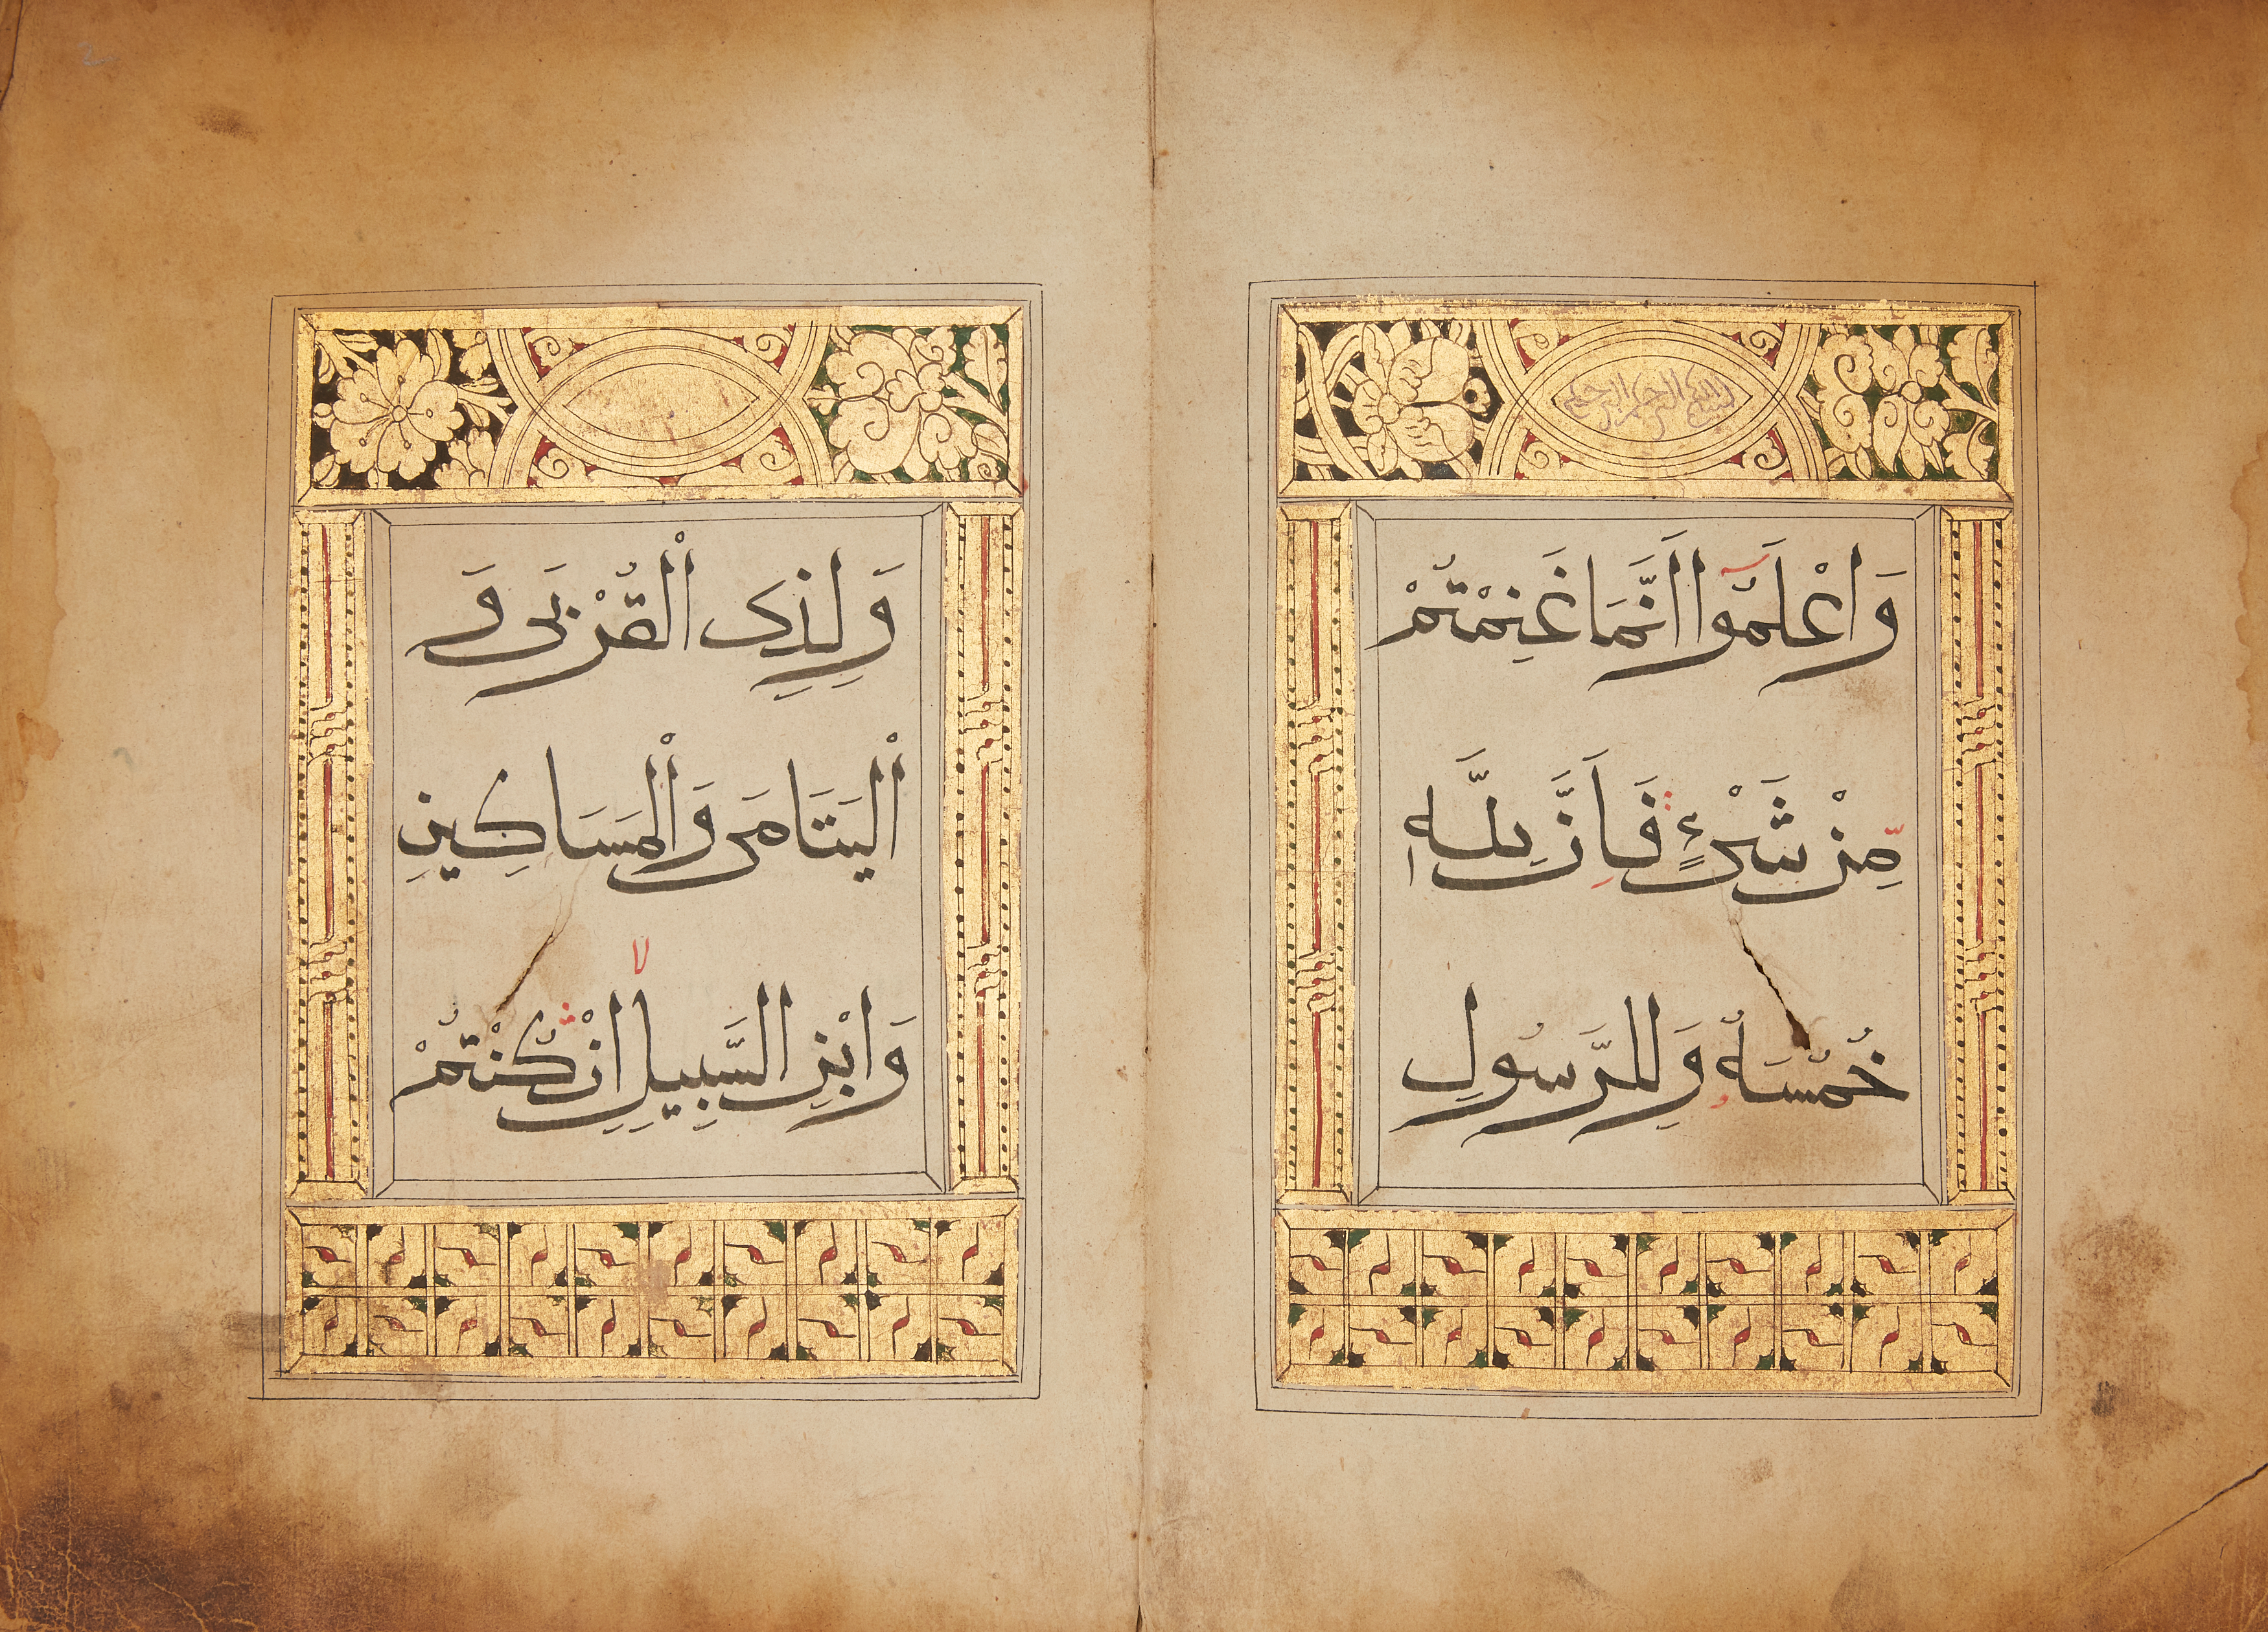 بسم الله الرحمن الرحيم
وَاعْلَمُوا اَنَّمَا غَنِمْتُمْ
مِنْ شَيْءٍ فَاَنَّ لِلّٰهِ
خُمُسَهُ وَلِلرَّسُولِ
وَلِذِی الْقُرْبَى وَ
الْيَتَامَى وَالْمَسَاكِينِ
وَابْنِ السَّبِيلِ اِنْ كُنْتُمْ